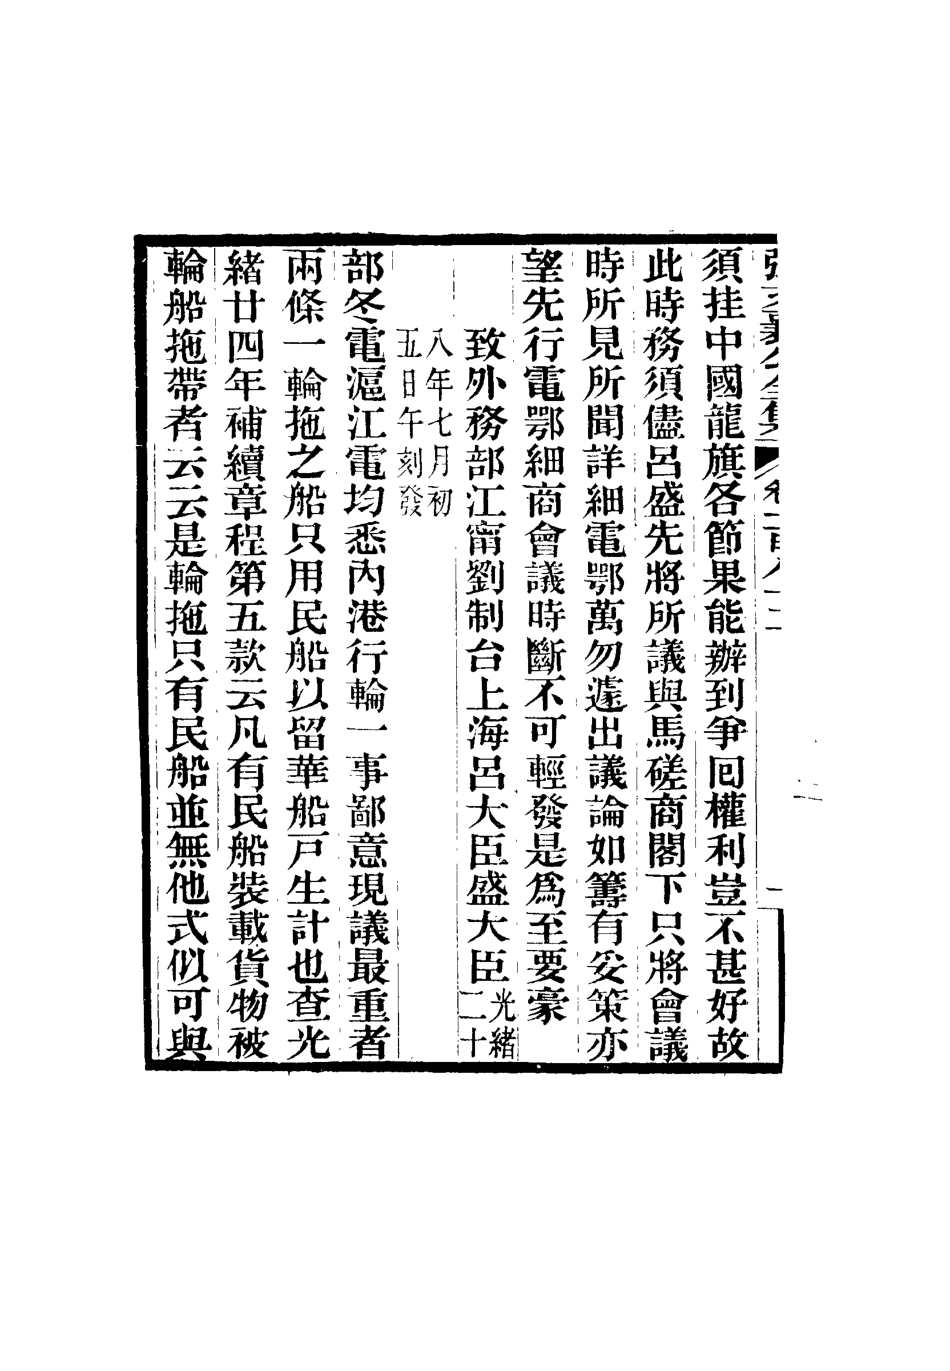 張文襄公全集 卷一百八十二
須挂中國龍旗各節果能辦到爭回權利豈不甚好故
此時務須儘呂盛先將所議與馬磋商閣下只將會議
時所見所聞詳細電鄂萬勿遽出議論如籌有妥策亦
望先行電鄂細商會議時斷不可輕發是爲至要豪
致外務部江甯劉制台上海呂大臣盛大臣光緒二十
八年七月初五日午刻發
部冬電滬江電均悉內港行輪一事鄙意現議最重者
兩條一輪拖之船只用民船以留華船戸生計也查光
緒廿四年補續章程第五款云凡有民船裝載貨物被
輪船拖帶者云云是輪拖只有民船並無他式似可與